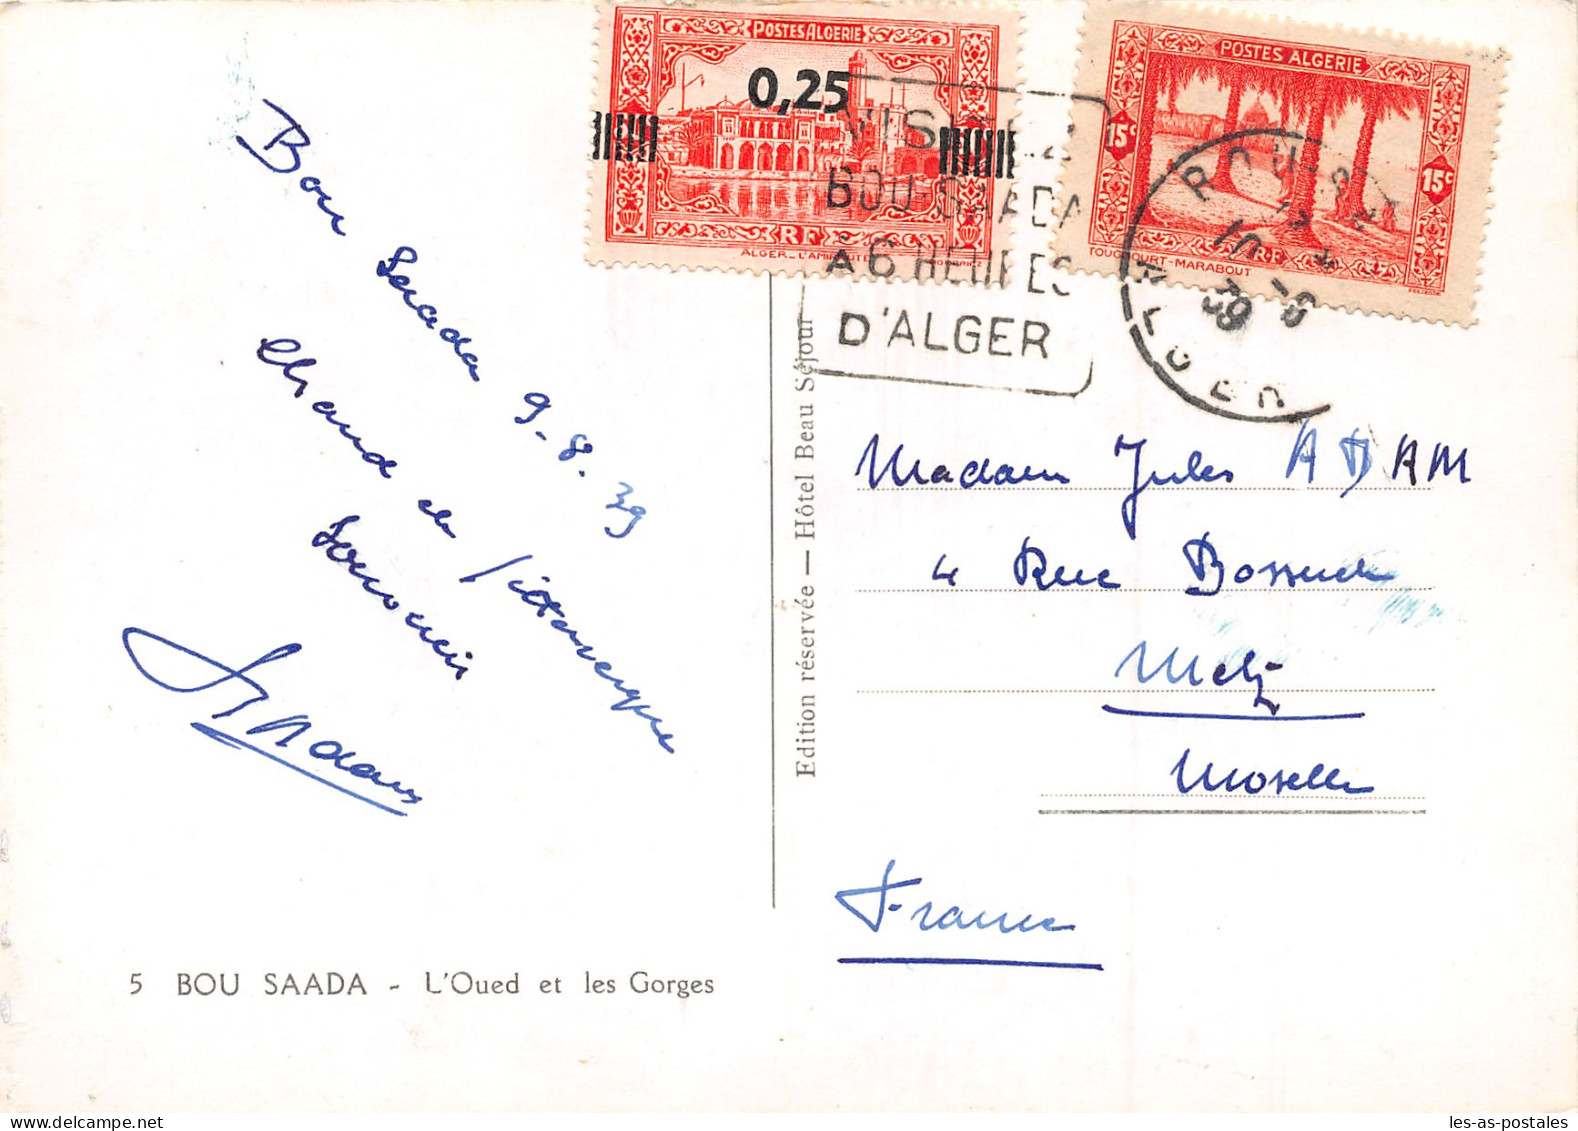 Bou Saada 9-8.39
Chaud et pittoresque
Souvenir
Adam
5 BOU SAADA - L'Oued et les Gorges
Edition réservée — Hôtel Beau Séjour
POSTES ALGERIE
0,25
RF
ALGER_L'AMIRAUTE
POSTES ALGERIE
15c
15c
RF
TOUGGOURT-MARABOUT
VISITEZ
BOU-SAADA
À 6 HEURES
D'ALGER
BOU-SAADA
ALGER
39
Madame Jules ADAM
4 Rue Bossuet
Metz
Moselle
France
les-as-postales